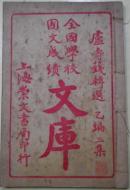 盧壽籛精選 乙編一集
全國學校
國文成績
文庫
上海崇文書局印行